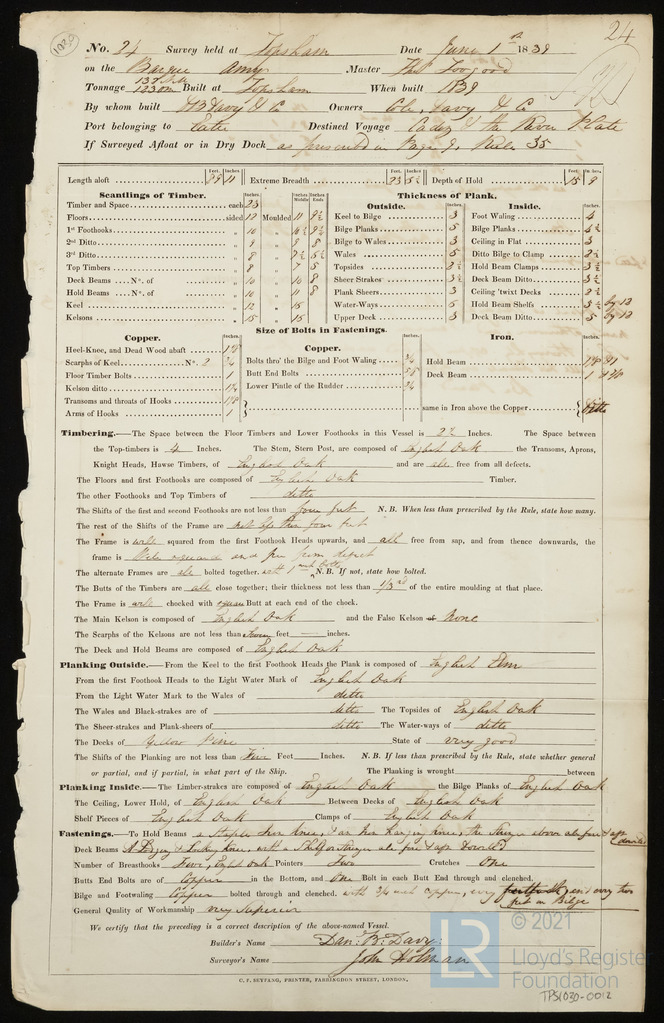 1030
24
No. 24 Survey held at Topsham Date June 1st 1839
on the Barque Amy Master
Tonnage Built at Topsham When built 1839
By whom built Davy & Co Owners Cole, Davy & Co
Port belonging to Exeter Destined Voyage Cadiz & the River Plate
If Surveyed Afloat or in Dry Dock as prescribed in Page 9, Rule 35
Feet. Inches. Feet. Inches. Feet. In.
Length aloft 99 11 Extreme Breadth 23 Depth of Hold 15 9
Scantlings of Timber. Thickness of Plank.
Outside. Inside.
Timber and Space each 23
Floors sided 12 Moulded 11 Keel to Bilge 3 Foot Waling 4
1st Foothooks 10 Bilge Planks 5 Bilge Planks
2nd Ditto 9 Bilge to Wales 3 Ceiling in Flat 3
3rd Ditto 8 Wales 5 Ditto Bilge to Clamp
Top Timbers 8 7 5 Topsides Hold Beam Clamps
Deck Beams No. of 10 10 8 Sheer Strakes Deck Beam Ditto
Hold Beams No. of 10 11 8 Plank Sheers 3 Ceiling 'twixt Decks
Keel 12 Water-Ways Hold Beam Shelfs by 12
Kelsons 15 15 Upper Deck 3 Deck Beam Ditto 5 by 12
Size of Bolts in Fastenings.
Copper. Copper. Iron.
Heel-Knee, and Dead Wood abaft
Scarphs of Keel No. 2 3/4 Bolts thro' the Bilge and Foot Waling 3/4 Hold Beam
Floor Timber Bolts 1 Butt End Bolts 5/8 Deck Beam
Kelson ditto Lower Pintle of the Rudder
Transoms and throats of Hooks same in Iron above the Copper Ditto
Arms of Hooks 1
Timbering.—The Space between the Floor Timbers and Lower Foothooks in this Vessel is Inches. The Space between
the Top-timbers is 4 Inches. The Stem, Stern Post, are composed of English Oak the Transoms, Aprons,
Knight Heads, Hawse Timbers, of English Oak and are all free from all defects.
The Floors and first Foothooks are composed of English Oak Timber.
The other Foothooks and Top Timbers of ditto
The Shifts of the first and second Foothooks are not less than four feet N. B. When less than prescribed by the Rule, state how many.
The rest of the Shifts of the Frame are not less than four feet
The Frame is well squared from the first Foothook Heads upwards, and all free from sap, and from thence downwards, the
frame is well squared and free from defect
The alternate Frames are all bolted together. with inch bolts N. B. If not, state how bolted.
The Butts of the Timbers are all close together; their thickness not less than 1/3rd of the entire moulding at that place.
The Frame is well chocked with square Butt at each end of the chock.
The Main Kelson is composed of English Oak and the False Kelson None
The Scarphs of the Kelsons are not less than feet — inches.
The Deck and Hold Beams are composed of English Oak
Planking Outside.—From the Keel to the first Foothook Heads the Plank is composed of English Elm
From the first Foothook Heads to the Light Water Mark of English Oak
From the Light Water Mark to the Wales of ditto
The Wales and Black-strakes are of ditto The Topsides of English Oak
The Sheer-strakes and Plank-sheers of ditto The Water-ways of ditto
The Decks of Yellow Pine State of very good
The Shifts of the Planking are not less than Five Feet Inches. N. B. If less than prescribed by the Rule, state whether general
or partial, and if partial, in what part of the Ship. The Planking is wrought between
Planking Inside.—The Limber-strakes are composed of English Oak the Bilge Planks of English Oak
The Ceiling, Lower Hold, of English Oak Between Decks of English Oak
Shelf Pieces of English Oak Clamps of English Oak
Fastenings.—To Hold Beams a Staple Iron Knee, & an Iron Hanging Knee,
Deck Beams
Number of Breasthooks Five, English Oak Pointers Two Crutches One
Butts End Bolts are of Copper in the Bottom, and One Bolt in each Butt End through and clenched.
Bilge and Footwaling Copper bolted through and clenched. with 3/4 inch copper, every
feet in Bilge
General Quality of Workmanship very Superior
We certify that the preceding is a correct description of the above-named Vessel.
Builder's Name Dan. B. Davy.
Surveyor's Name John Holman
C. F. SEYFANG, PRINTER, FARRINGDON STREET, LONDON.
LR
© 2021
Lloyd's Register
Foundation
TPS1030-0012